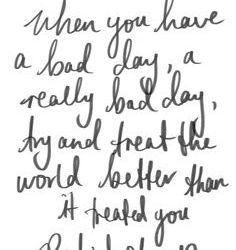 when you have
a bad day, a
really bad day,
try and treat the
world better than
it treated you